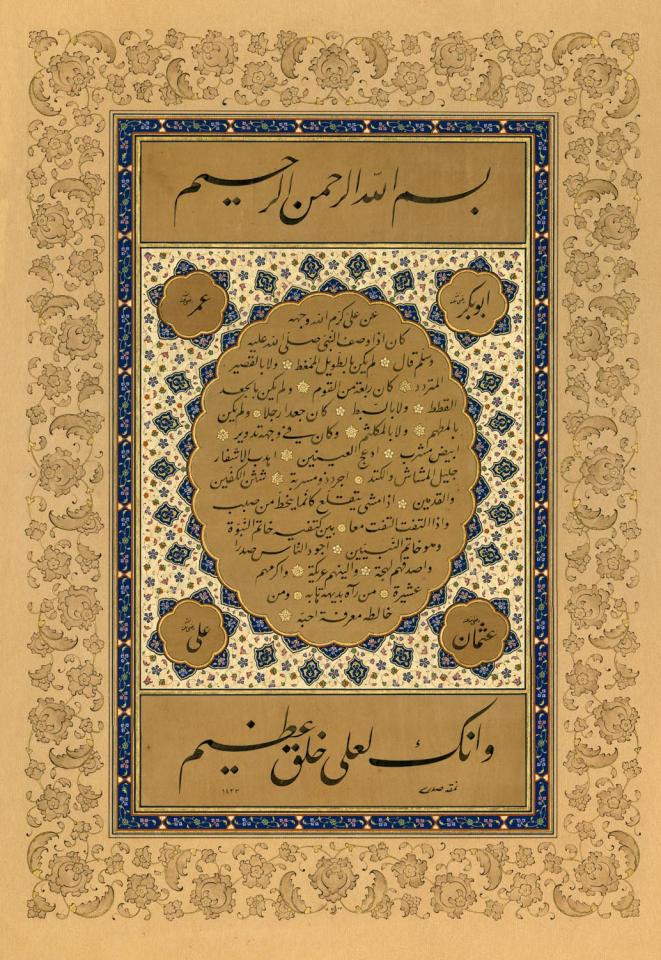 بسم الله الرحمن الرحيم
ابوبكر
عمر
عن علي كرم الله وجهه
كان اذا وصف النبي صلى الله عليه
وسلم قال لم يكن بالطويل الممغط ولا بالقصير
المتردد كان ربعة من القوم ولم يكن بالجعد
القطط ولا بالسبط كان جعدا رجلا ولم يكن
بالمطهم ولا بالمكلثم وكان في وجهه تدوير
ابيض مشرب ادعج العينين اهدب الاشفار
جليل المشاش والكتد اجرد ذو مسربة شثن الكفين
والقدمين اذا مشى يتقلع كانما ينحط من صبب
واذا التفت التفت معا بين كتفيه خاتم النبوة
وهو خاتم النبيين اجود الناس صدرا
واصدقهم لهجة والينهم عريكة واكرمهم
عشيرة من رآه بديهة هابه ومن
خالطه معرفة احبه
عثمان
علي
وانك لعلى خلق عظيم
نمقه
١٤٢٣